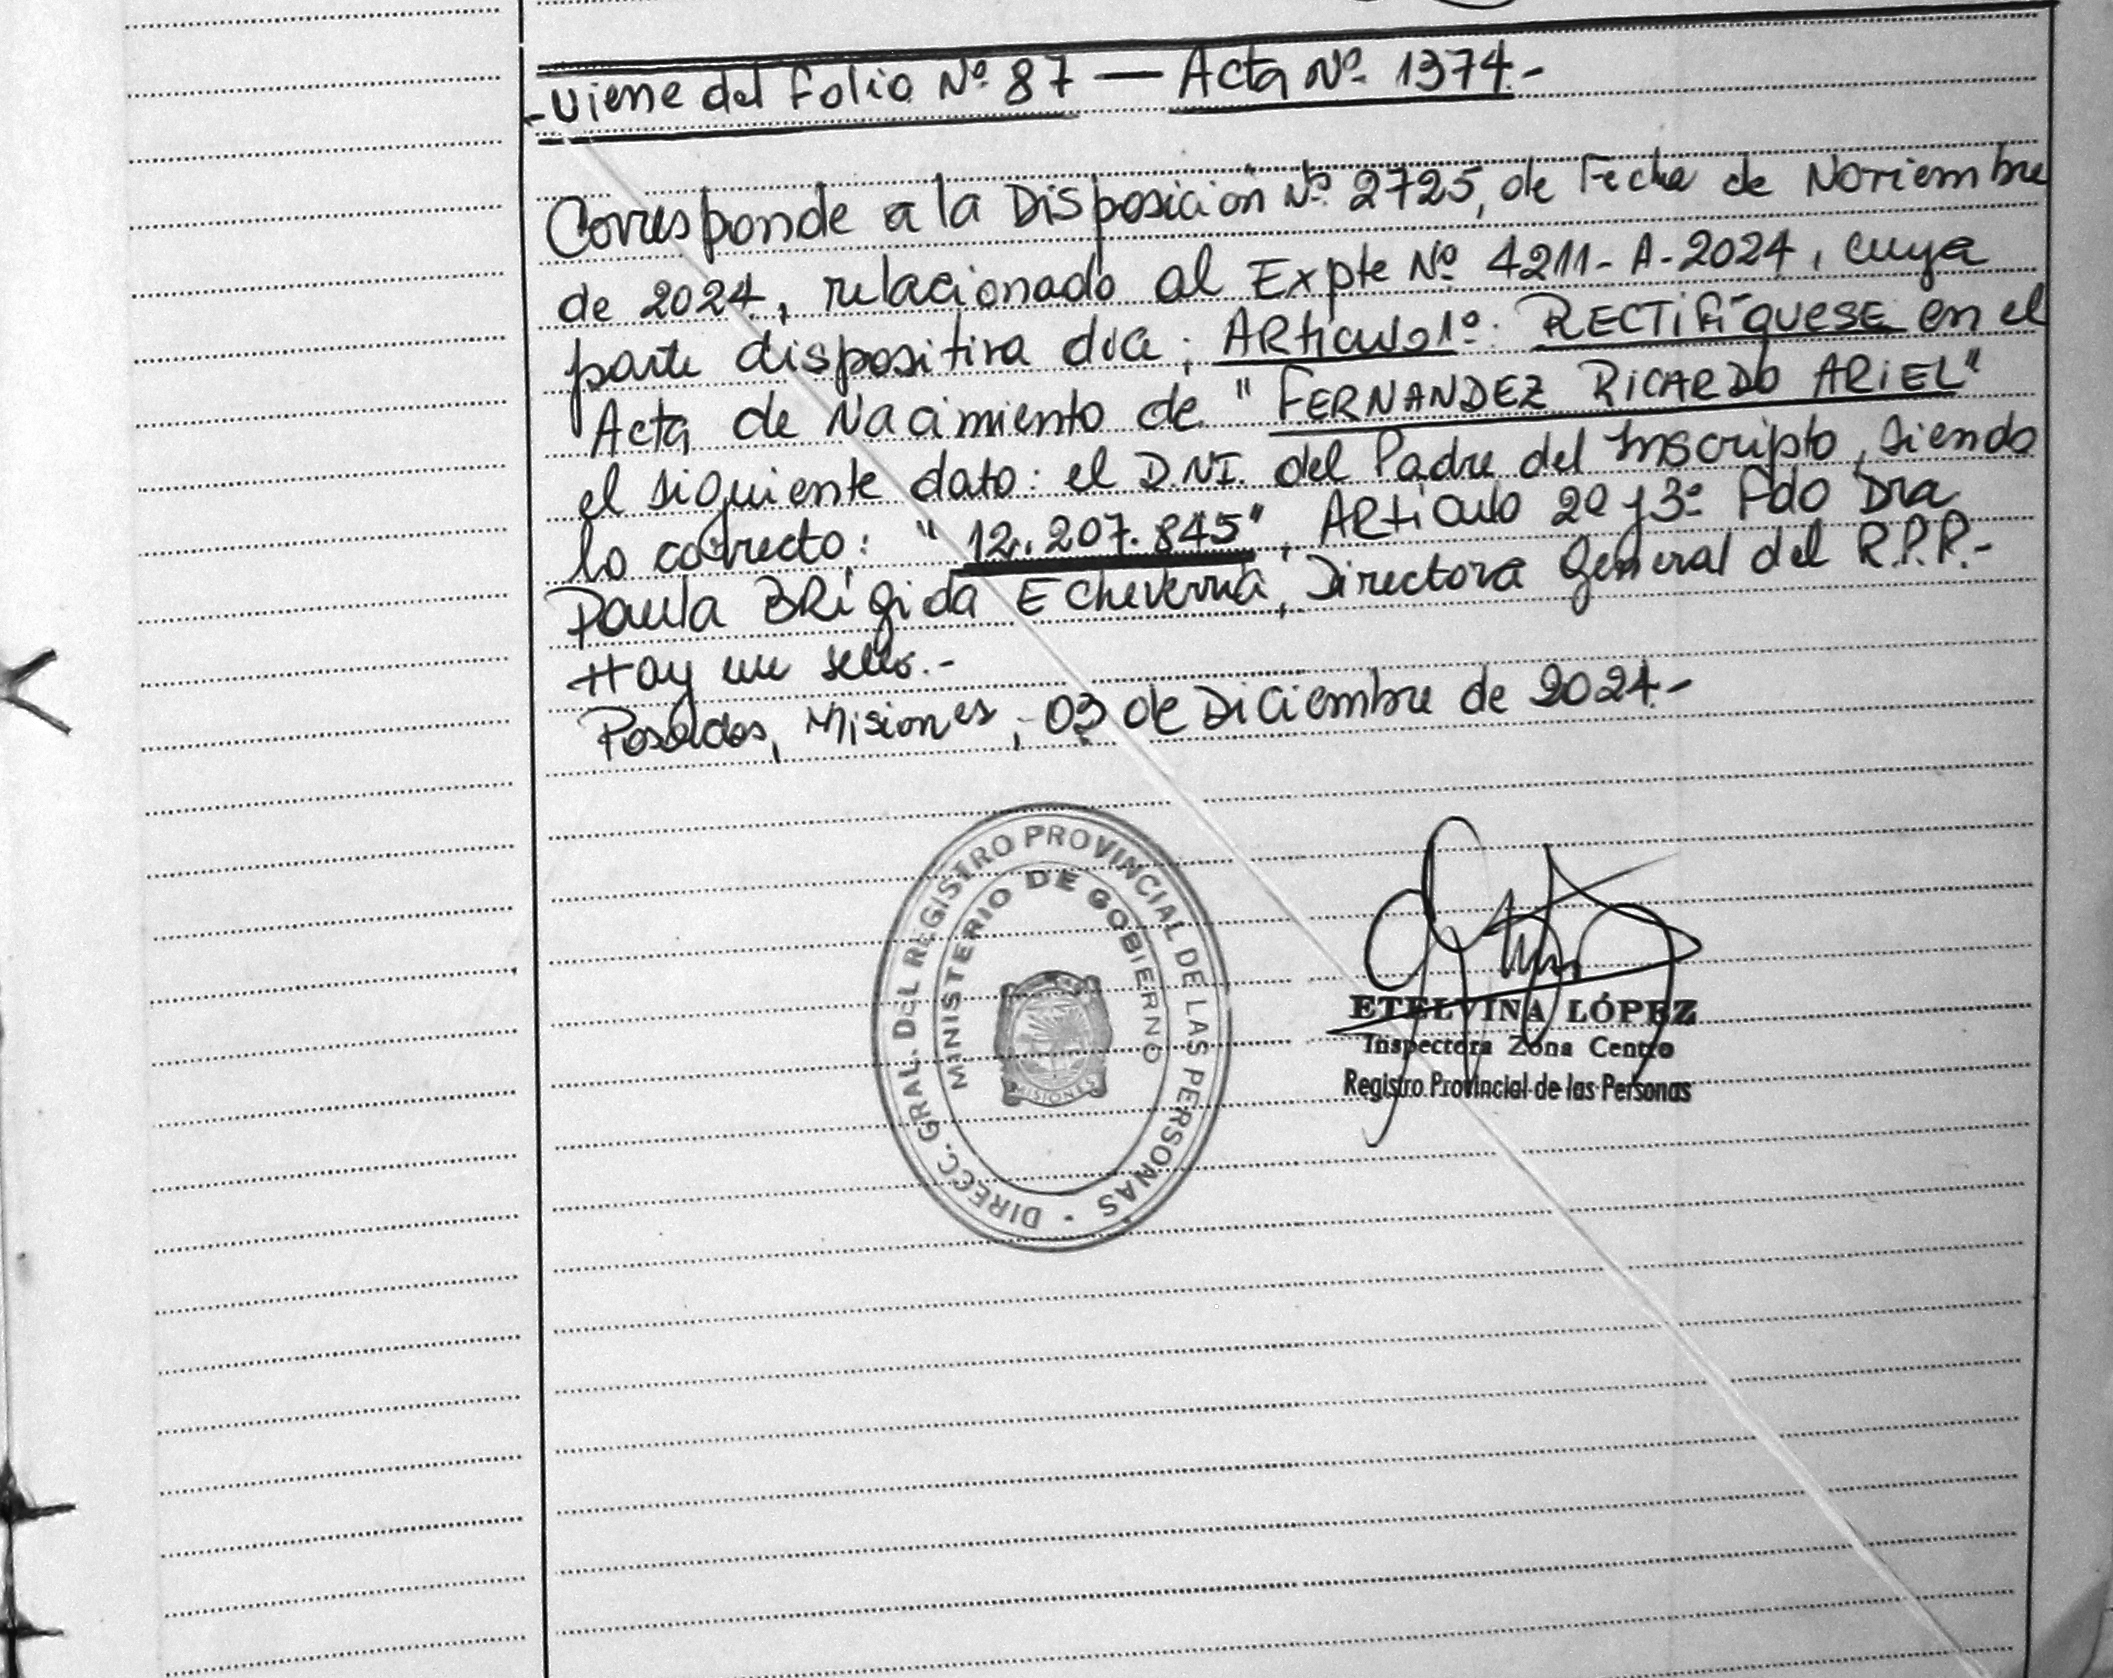 -Viene del Folio Nº 87 — Acta Nº 1374.-
Corresponde a la Disposición Nº 2725, de Fecha de Noviembre
de 2024, relacionado al Expte Nº 4211-A-2024, cuya
parte dispositiva dice; ARticulo 1º: RECTIFÍQUESE en el
Acta de Nacimiento de "FERNANDEZ RICARDO ARIEL"
el siguiente dato: el D.NI. del Padre del Inscripto, siendo
lo correcto: "12.207.845", ARticulo 2º y 3º Fdo Dra
Paula BRígida Echeverria, Directora General del R.P.P.-
Hay un sello.-
Posadas, Misiones, 03 de Diciembre de 2024.-
DIRECC. GRAL. DEL REGISTRO PROVINCIAL DE LAS PERSONAS -
MINISTERIO DE GOBIERNO
MISIONES
ETELVINA LÓPEZ
Inspectora Zona Centro
Registro Provincial de las Personas